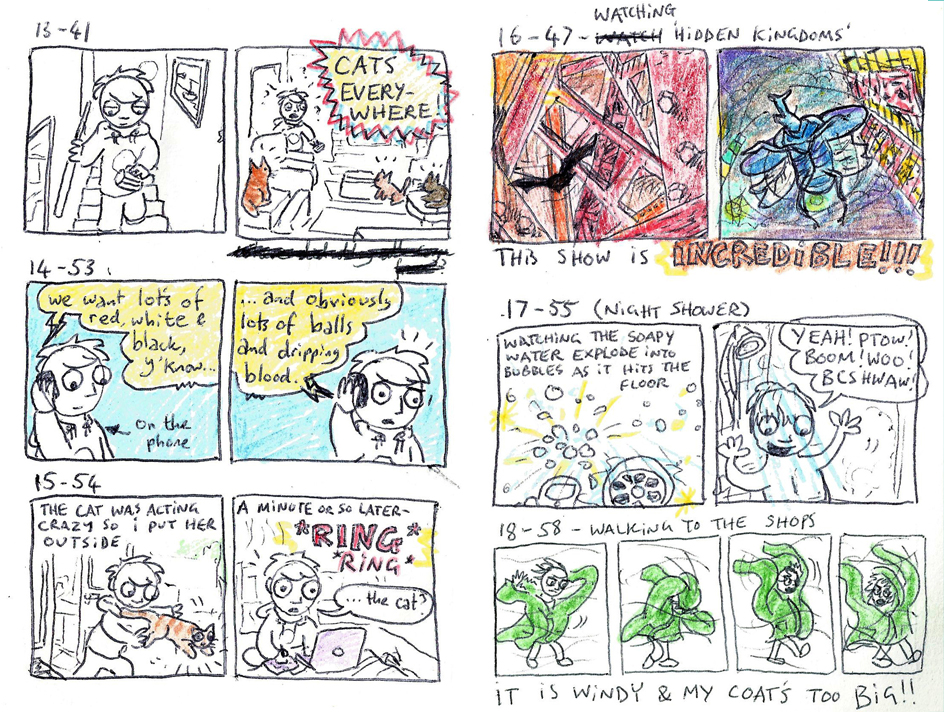 13-41
CATS
EVERY-
WHERE!
14-53
we want lots of
red, white &
black,
y'know...
on the
phone
... and obviously
lots of balls
and dripping
blood.
15-54
THE CAT WAS ACTING
CRAZY SO i PUT HER
OUTSIDE
A MINUTE OR SO LATER-
*RING*
*RING*
... the cat?
WATCHING
16-47- WATCH 'HIDDEN KINGDOMS'
THIS SHOW IS INCREDIBLE!!!
17-55 (NIGHT SHOWER)
WATCHING THE SOAPY
WATER EXPLODE INTO
BUBBLES AS iT HITS THE
FLOOR
YEAH! PTOW!
BOOM! WOO!
BCSHWAW!
18-58 - WALKING TO THE SHOPS
iT iS WiNDY & MY COAT'S TOO BiG!!